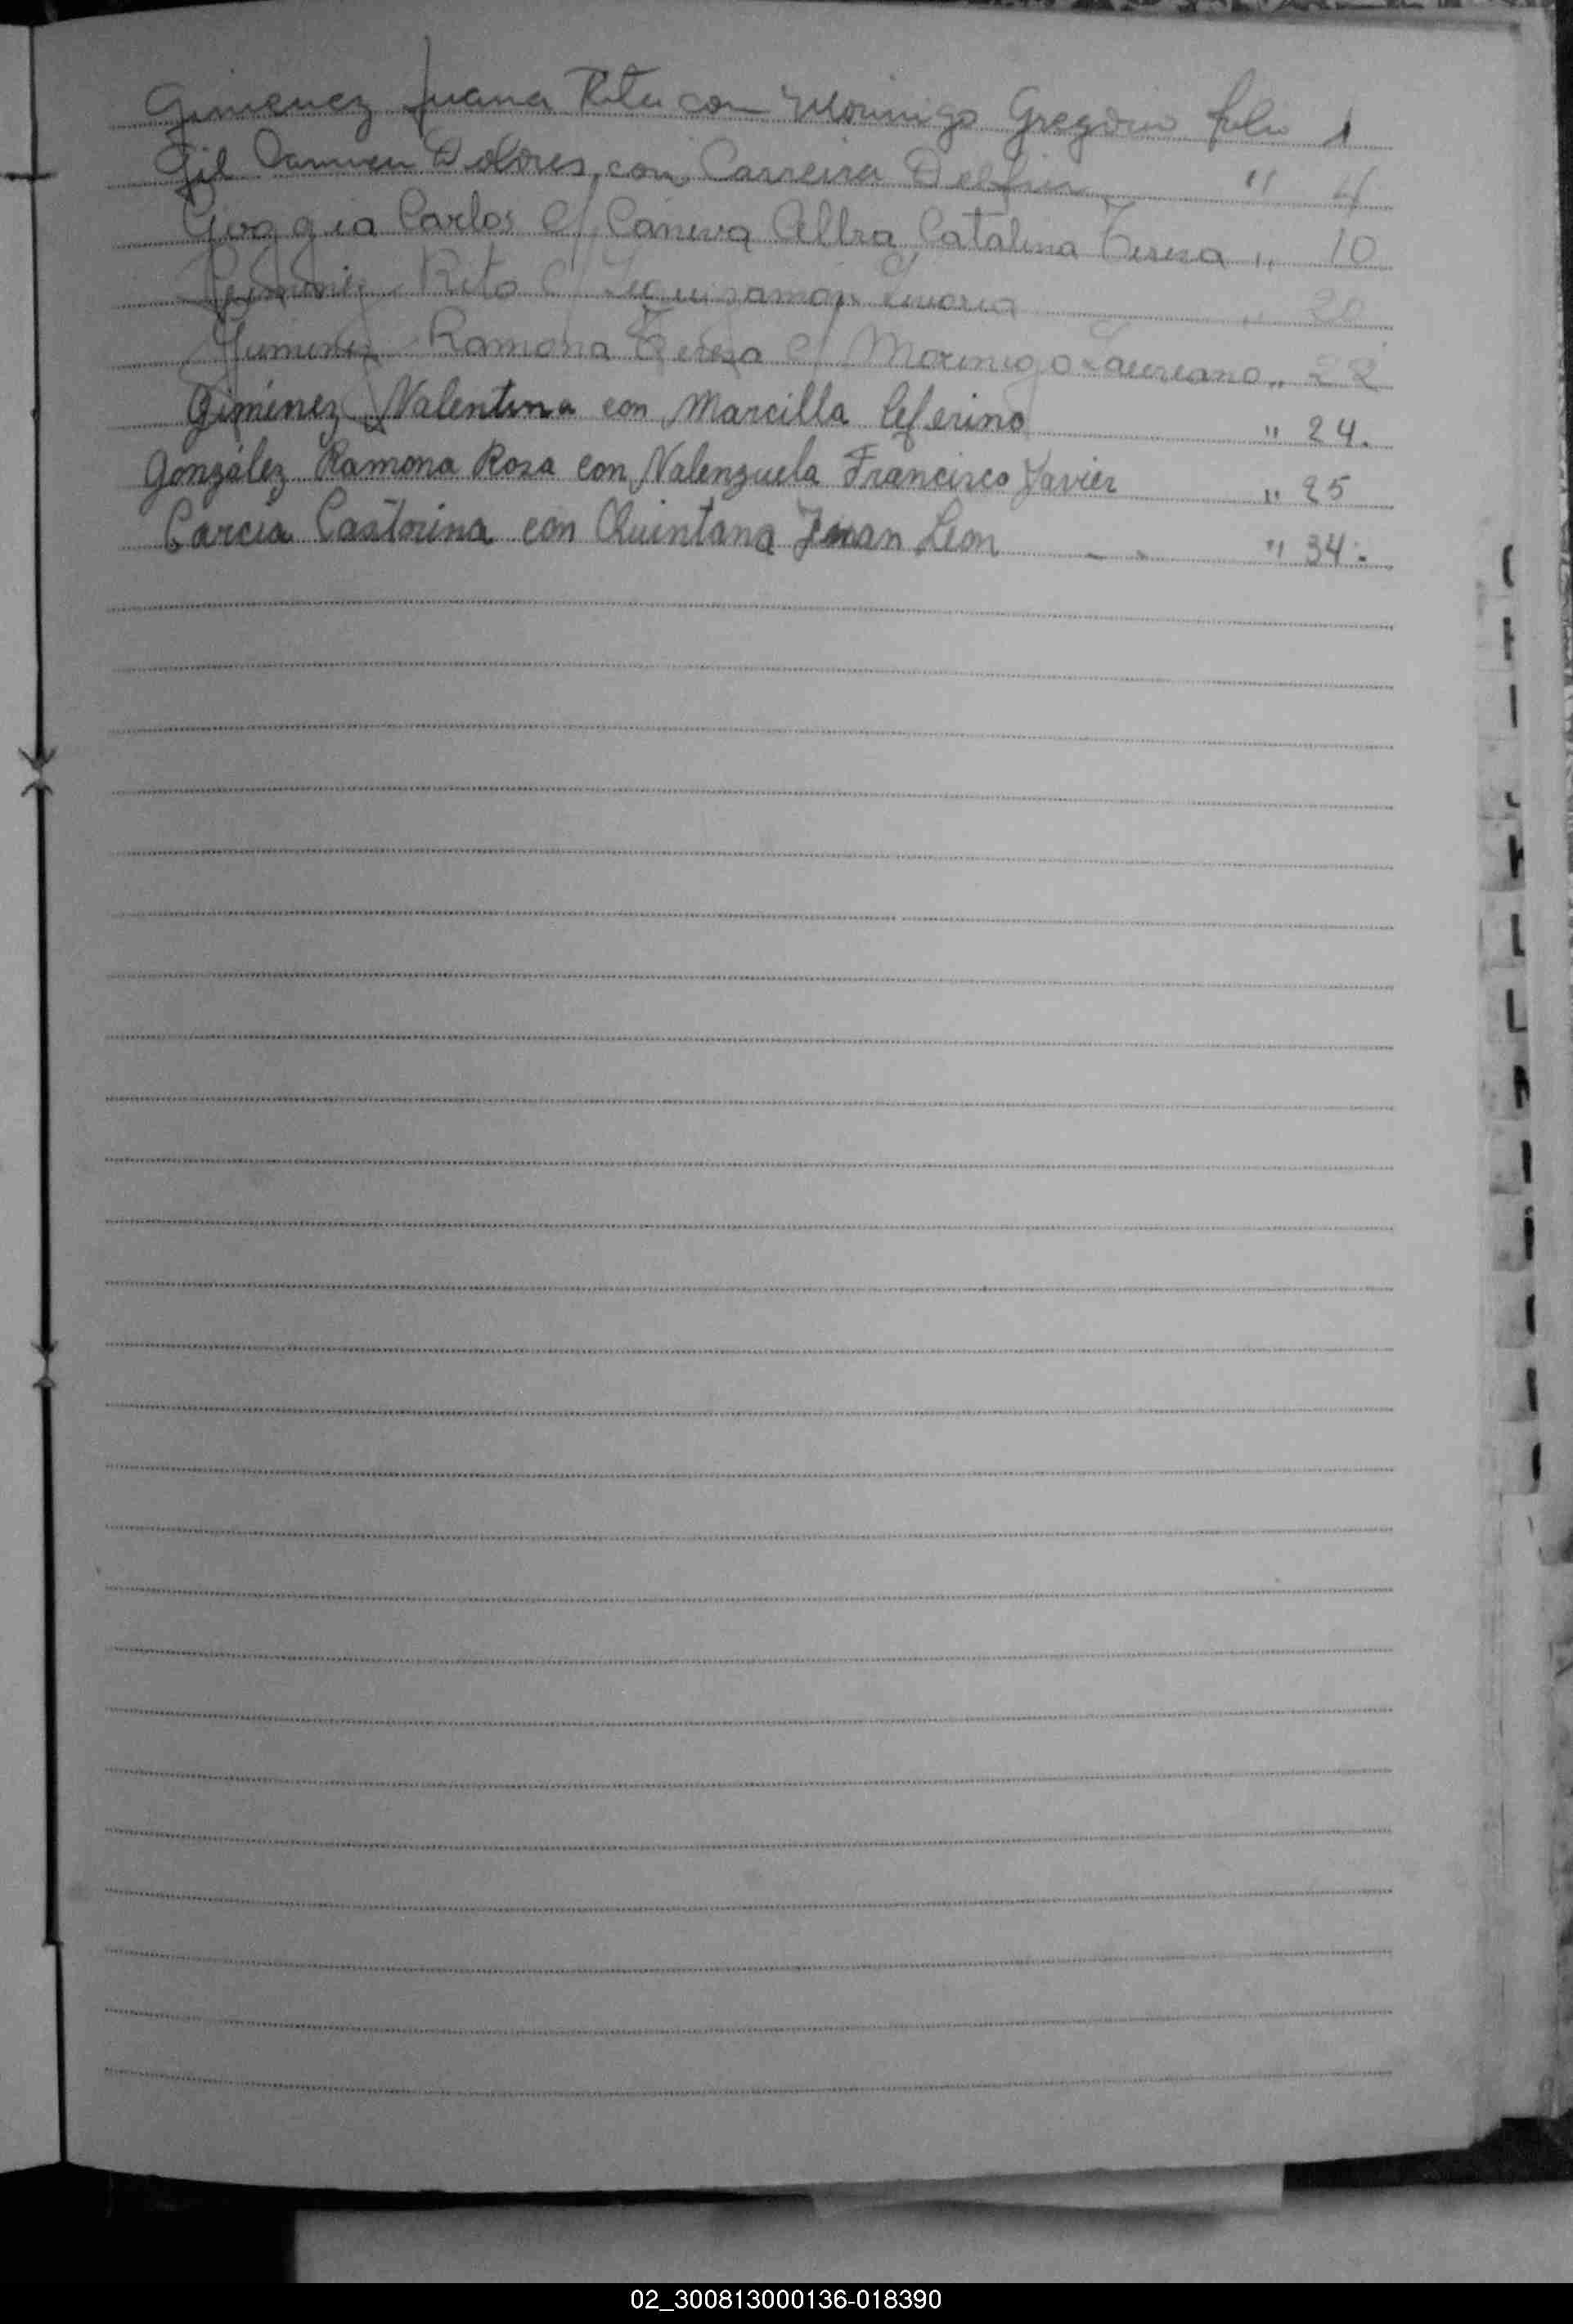 Gimenez Juana Rita con Morinigo Gregorio folio 1
Gil Carmen Dolores, con Carreira Delfin " 4
Gioggia Carlos c/ Caneva Albra Catalina Teresa " 10
Gimenez Rito c/ Leguizamón " 20
Gimenez Ramona Teresa c/ Morinigo Laureano " 22
Giménez Valentina con Marcilla Ceferino " 24.
González Ramona Rosa con Valenzuela Francisco Javier " 25
Garcia Castorina con Quintana Juan Leon - - " 34.-
02_300813000136-018390